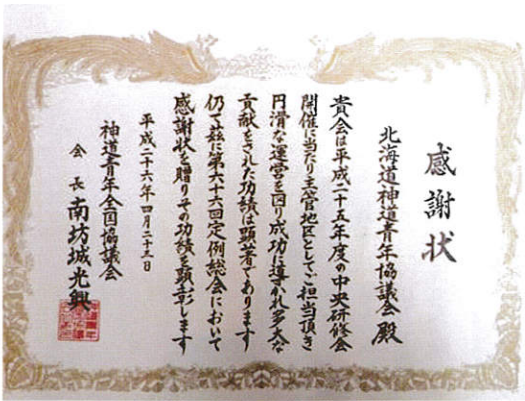 感謝状
北海道神道青年協議会殿
貴会は平成二十五年度の中央研修会
開催に当たり主管地区としてご担当頂き
円滑な運営を図り成功に導かれ多大な
貢献をされた功績は顕著であります
仍て茲に第六十六回定例総会において
感謝状を贈りその功績を顕彰します
平成二十六年四月二十三日
神道青年全国協議会
会長南坊城光興